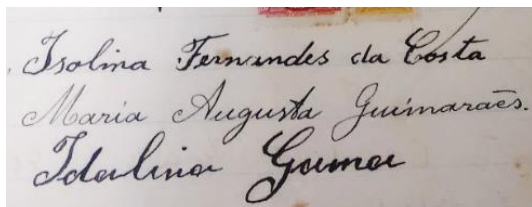 Isolina Fernandes da Costa
Maria Augusta Guimarães.
Idalina Gama